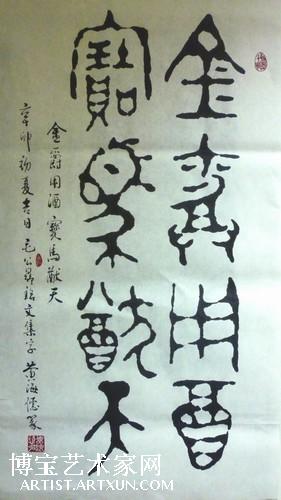 金爵用酒
寶馬猷天
金爵用酒 寶馬猷天
辛卯初夏吉日 毛公鼎銘文集字 黄海篆
博宝艺术家网
ARTIST.ARTXUN.COM